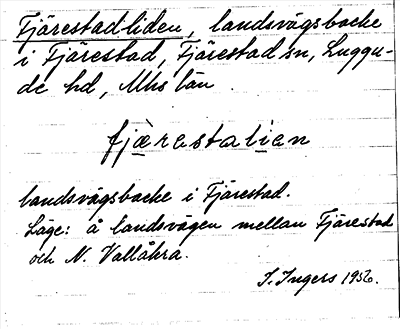 Fjärestad-liden, landsvägsbacke
i Fjärestad, Fjärestad sn, Luggu-
de hd, Mhs län.
fjærestalien
landsvägsbacke i Fjärestad.
Läge: å landsvägen mellan Fjärestad
och N. Vallåkra.
I. Ingers 1956.